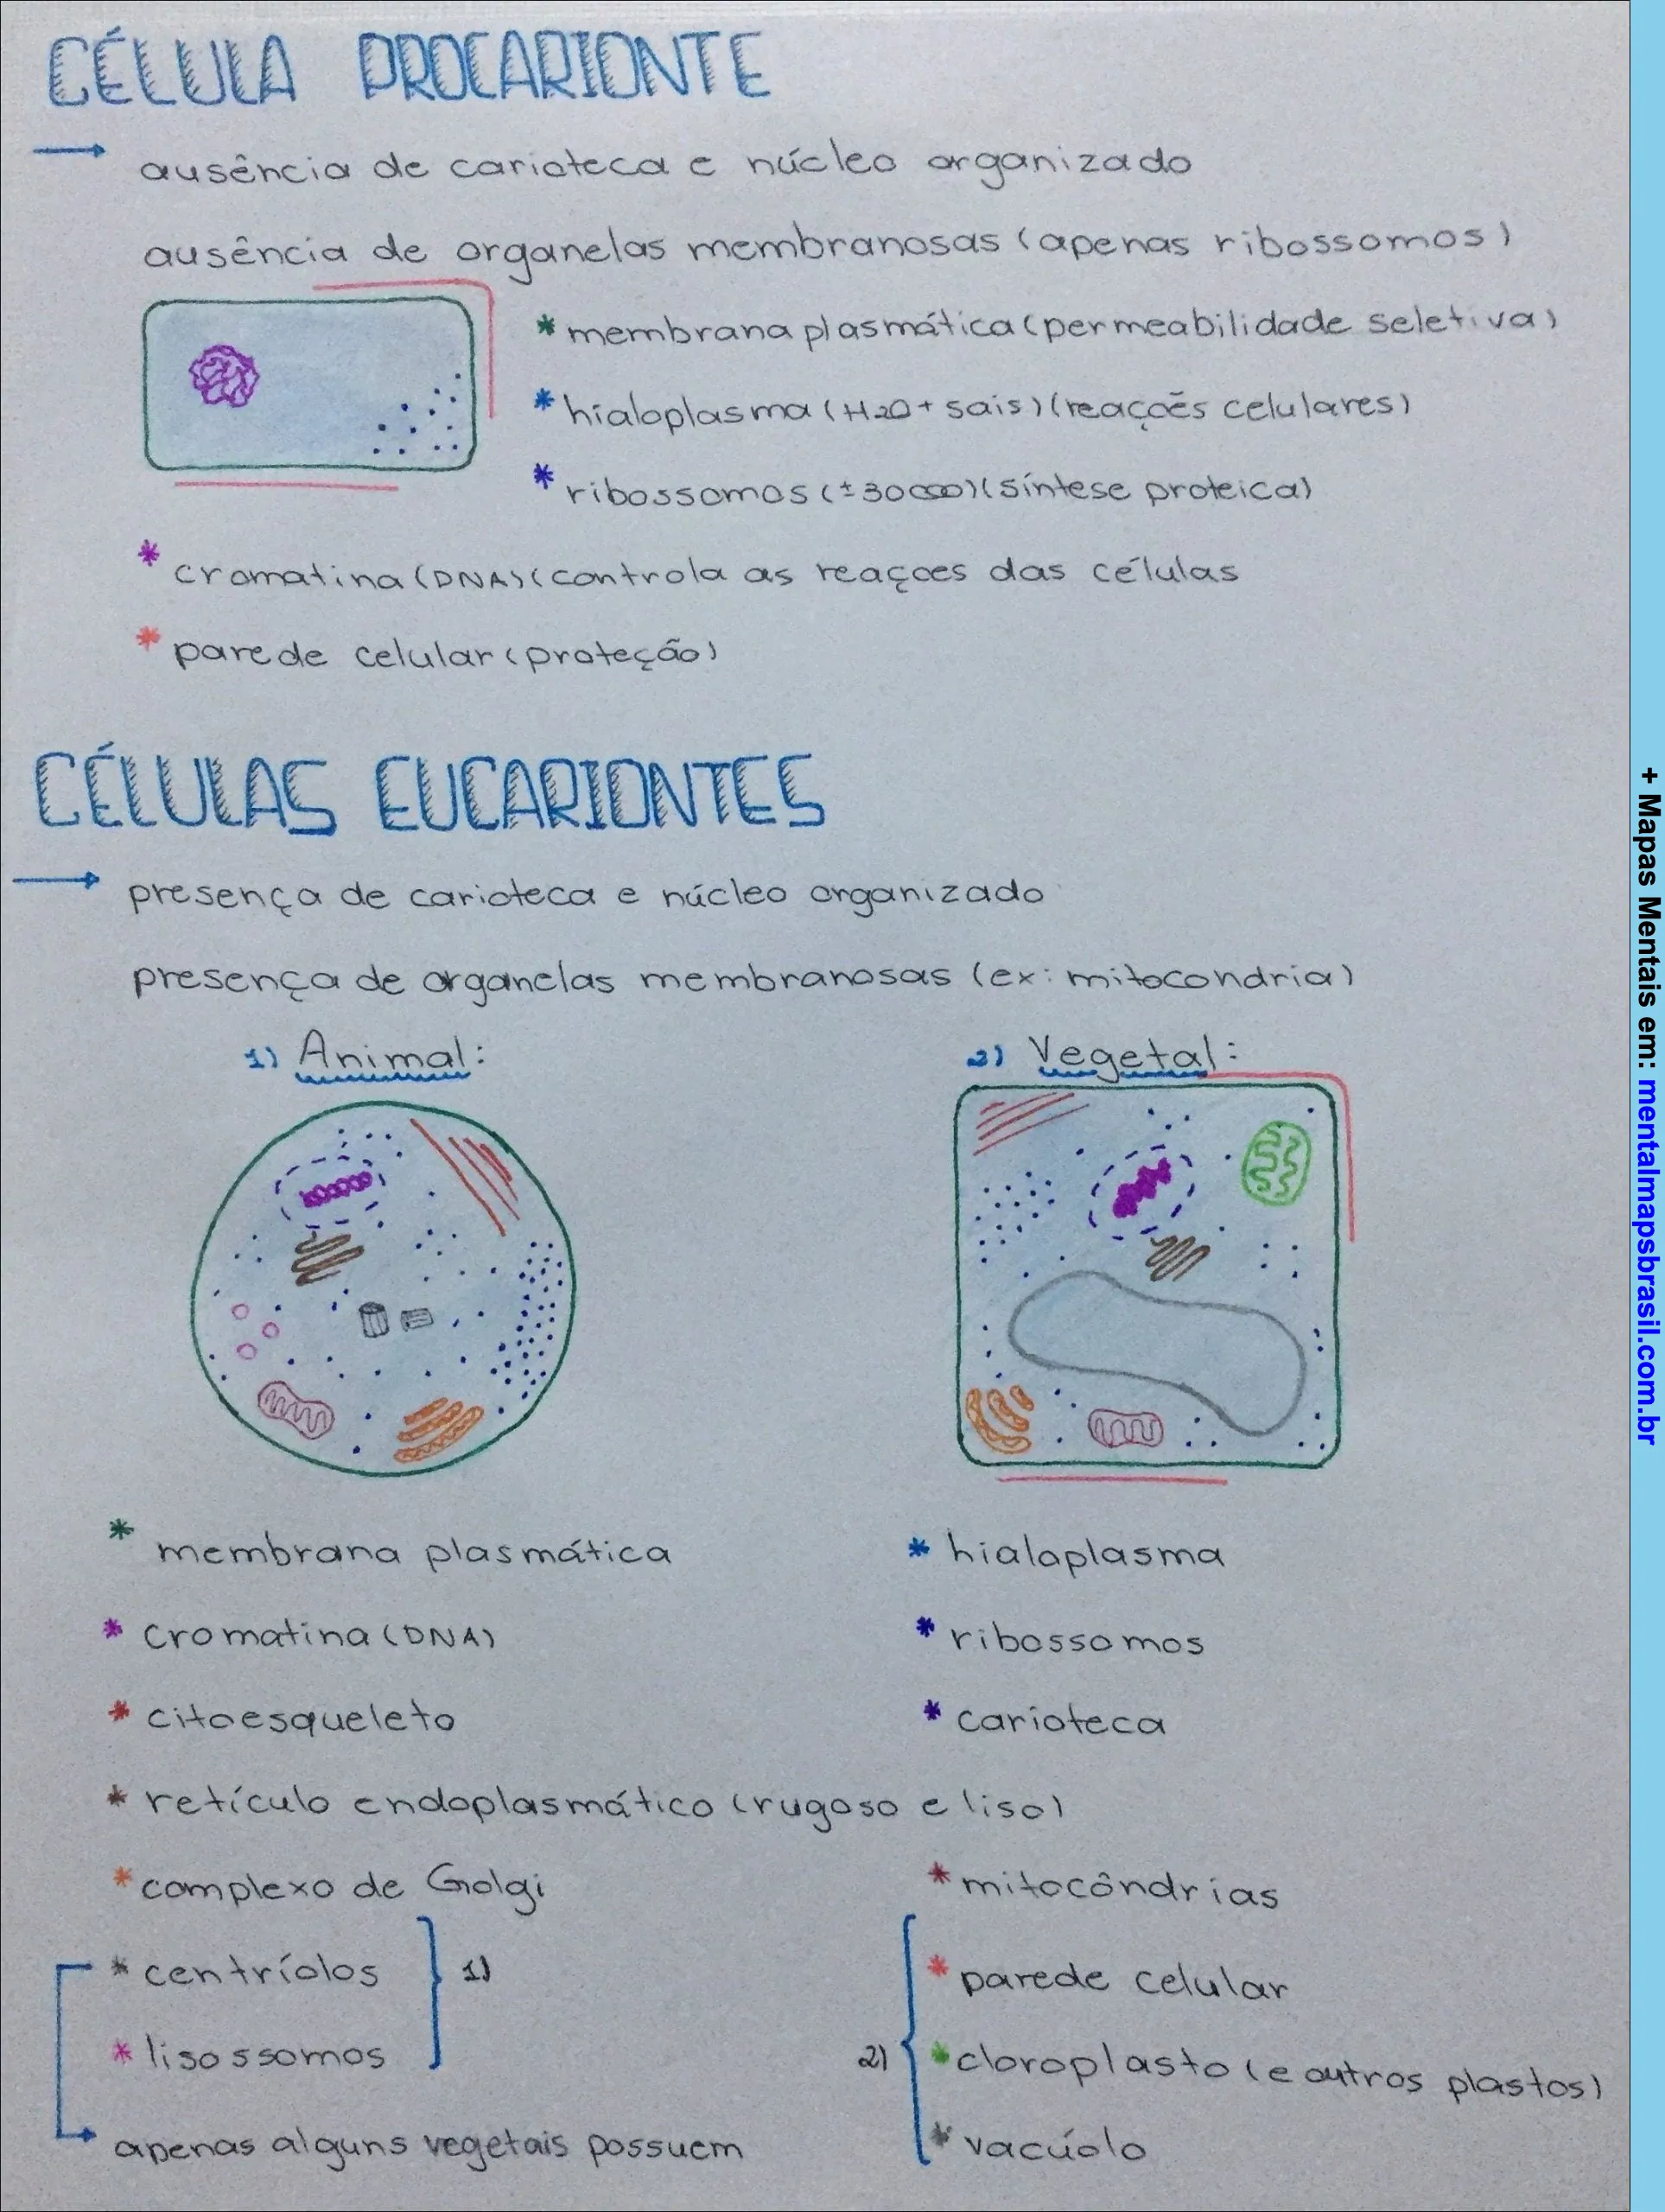 CÉLULA PROCARIONTE
→ ausência de carioteca e núcleo organizado
ausência de organelas membranosas (apenas ribossomos)
* membrana plasmática (permeabilidade seletiva)
* hialoplasma (H2O + sais) (reações celulares)
* ribossomos (±30000) (síntese proteica)
* cromatina (DNA) (controla as reaçoes das células
* parede celular (proteção)
CÉLULAS EUCARIONTES
→ presença de carioteca e núcleo organizado
presença de organelas membranosas (ex: mitocondria)
1) Animal:
2) Vegetal:
* membrana plasmática
* hialoplasma
* cromatina (DNA)
* ribossomos
* citoesqueleto
* carioteca
* retículo endoplasmático (rugoso e liso)
* complexo de Golgi
* mitocôndrias
* centríolos
1)
* parede celular
* lisossomos
2)
* cloroplasto (e outros plastos)
→ apenas alguns vegetais possuem
* vacúolo
+ Mapas Mentais em: mentalmapsbrasil.com.br